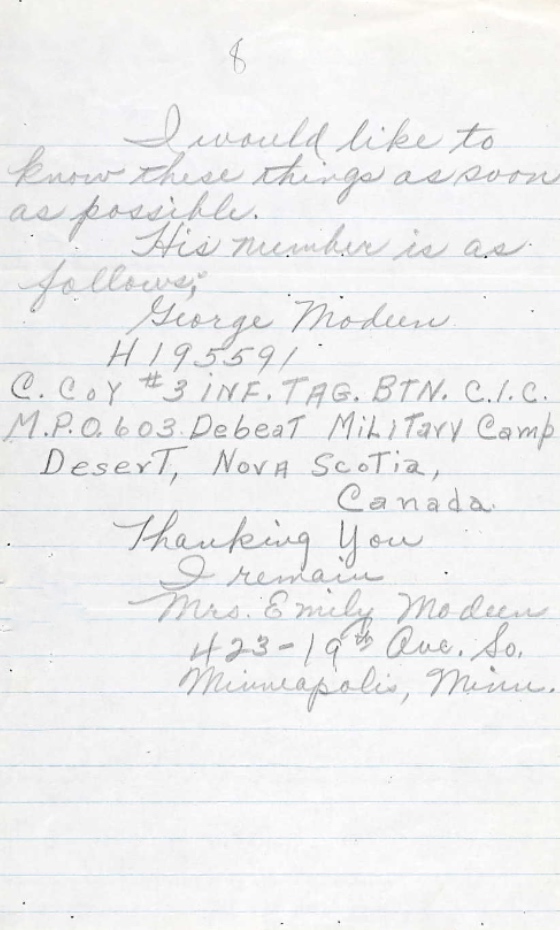 8
I would like to
know these things as soon
as possible.
His number is as
follows;
George Modeen
H195591
C. CoY #3 INF. TAG. BTN. C.I.C.
M.P.O. 603 Debeat Military Camp
Desert, Nova Scotia,
Canada.
Thanking You
I remain
Mrs. Emily Modeen
423-19th Ave. So.
Minneapolis, Minn.